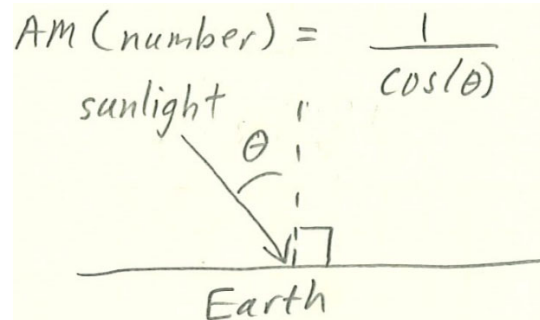 AM (number) = 1
cos(θ)
sunlight
θ
Earth